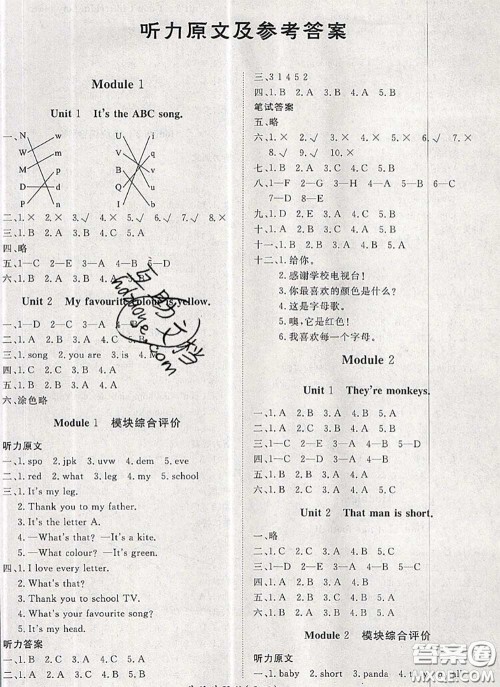 听力原文及参考答案
Module 1
Unit 1 It's the ABC song.
一、N w B u
W m U i
M p I q
P d V b
D n Q v
二、1.× 2.× 3.√ 4.× 5.√ 6.√
三、1.B 2.A 3.B 4.C 5.A
四、略
五、1—C 2—E 3—A 4—B 5—D
六、1.B 2.A 3.B 4.C 5.A
Unit 2 My favourite colour is yellow.
一、1—D 2—C 3—A 4—B
二、1.B 2.A 3.B
三、1.song 2.you are 3.is
四、1.C 2.A 3.B
五、1.A 2.B 3.A 4.C 5.A
六、涂色略
Module 1 模块综合评价
听力原文
一、1.spo 2.jpk 3.uvw 4.dem 5.eve
二、1.red 2.white 3.song 4.your
三、1.It's my leg.
2.Thank you to my father.
3.It's the letter A.
4.—What's that? —It's a kite.
5.—What colour? —It's green.
四、1.I love every letter.
2.What's that?
3.Thank you to school TV.
4.What's your favourite song?
5.It's my head.
听力答案
一、1.B 2.B 3.A 4.C 5.A
三、3 1 4 5 2
四、1.B 2.A 3.B 4.B 5.A
笔试答案
五、略
六、1.× 2.√ 3.× 4.√ 5.× 6.√ 7.×
8.√ 9.√ 10.×
七、1.B 2.A 3.B 4.C 5.A 6.B
八、1—F 2—G 3—H 4—A 5—C 6—B
7—D 8—E
九、1.D 2.A 3.B 4.C
十、1.C 2.A 3.B 4.C 5.A
十一、1.B 2.A 3.B 4.B 5.A
十二、1.给你。
2.感谢学校电视台！
3.你最喜欢的颜色是什么？
4.这是字母歌。
5.噢，它是红色！
6.我喜欢每一个字母。
Module 2
Unit 1 They're monkeys.
一、1.A 2.B 3.A 4.B 5.A
二、1.B 2.C 3.A 4.B 5.C
三、1—C 2—E 3—B 4—A 5—D
四、1.B 2.A 3.B 4.A 5.B
五、1.A 2.B 3.B 4.A
Unit 2 That man is short.
一、略
二、1.C 2.C 3.A 4.B 5.C
三、1.B 2.B 3.A 4.A 5.B
四、1.A 2.B 3.A 4.B
五、1.A 2.B 3.B 4.A 5.A
Module 2 模块综合评价
听力原文
一、1.baby 2.short 3.panda 4.tall
答案圈
MXQE.COM